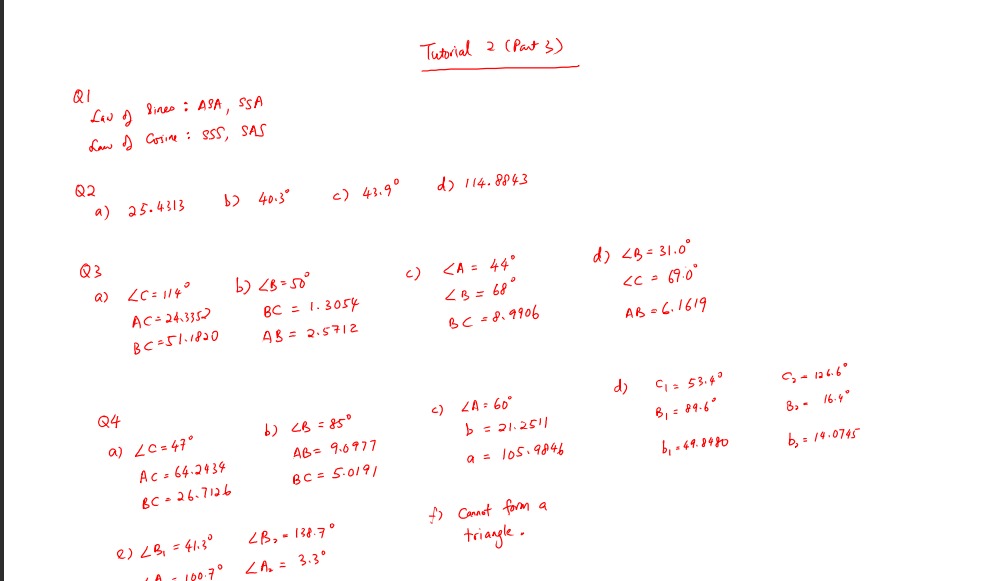 Tutorial 2 (Part 3)
Q1
Law of Sines : ASA, SSA
Law of Cosine : SSS, SAS
Q2
a) 25.4313 b) 40.3° c) 43.9° d) 114.8843
Q3
a) ∠C = 114°
AC = 24.3352
BC = 51.1820
b) ∠B = 50°
BC = 1.3054
AB = 2.5712
c) ∠A = 44°
∠B = 68°
BC = 8.9906
d) ∠B = 31.0°
∠C = 69.0°
AB = 6.1619
Q4
a) ∠C = 47°
AC = 64.2434
BC = 26.7126
b) ∠B = 85°
AB = 9.0977
BC = 5.0191
c) ∠A = 60°
b = 21.2511
a = 105.9846
d) C₁ = 53.4° C₂ = 126.6°
B₁ = 89.6° B₂ = 16.4°
b₁ = 49.8480 b₂ = 14.0745
e) ∠B₁ = 41.3° ∠B₂ = 138.7°
∠A = 100.7° ∠A₂ = 3.3°
f) Cannot form a
triangle.